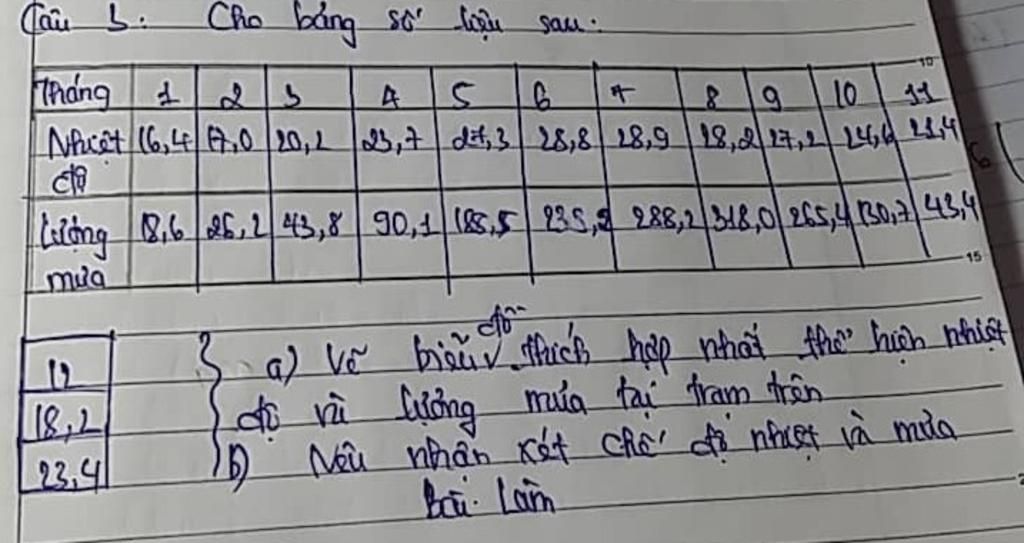 Câu 3: Cho bảng số liệu sau:
Tháng 1 2 3 4 5 6 7 8 9 10 11
Nhiệt độ 16,4 17,0 20,2 23,7 27,3 28,8 28,9 28,2 27,2 24,6 21,4
Lượng mưa 18,6 26,2 43,8 90,1 188,5 239,9 288,2 318,0 265,4 130,7 43,4
12
18,2
23,4
a) Vẽ biểu đồ thích hợp nhất thể hiện nhiệt
độ và lượng mưa tại trạm trên
b) Nêu nhận xét chế độ nhiệt và mưa
Bài Làm
10
15